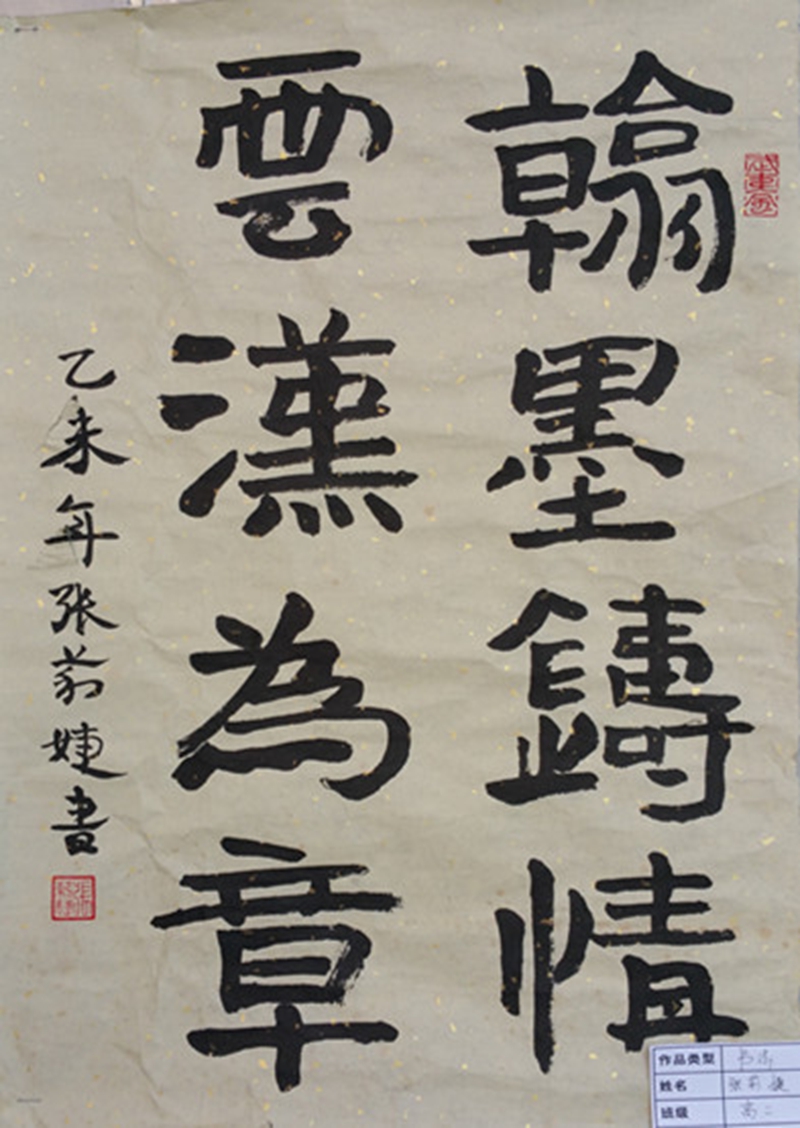 翰墨鑄情
雲漢為章
乙未年张婕書
作品类型 书法
姓名 张婕
班级 高二